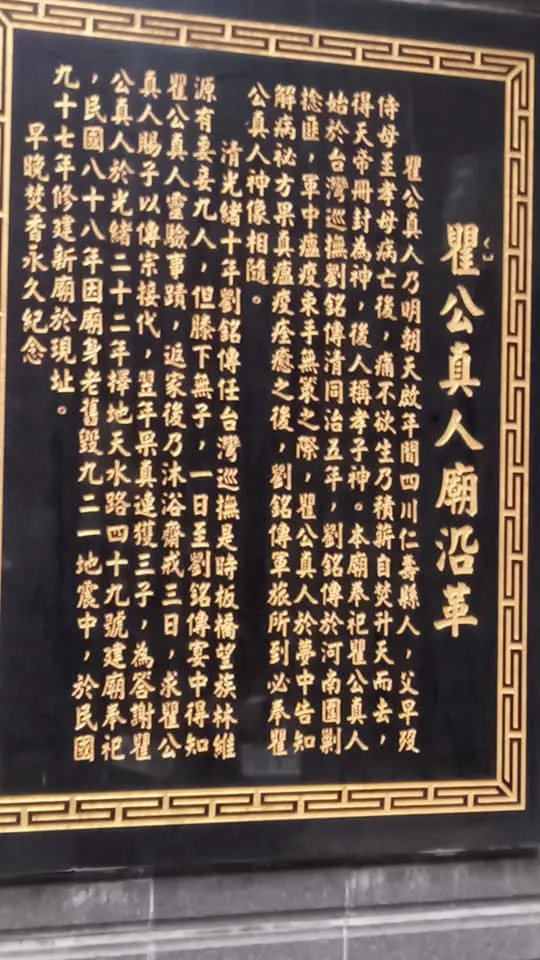 瞿公真人廟沿革
ㄑㄩˊ
瞿公真人乃明朝天啟年間四川仁壽縣人，父早歿
侍母至孝母病亡後，痛不欲生乃積薪自焚升天而去，
得天帝冊封為神，後人稱孝子神。本廟奉祀瞿公真人
始於台灣巡撫劉銘傳清同治五年，劉銘傳於河南圍剿
捻匪，軍中瘟疫束手無策之際，瞿公真人於夢中告知
解病祕方果真瘟疫痊癒之後，劉銘傳軍旅所到必奉瞿
公真人神像相隨。
清光緒十年劉銘傳任台灣巡撫是時板橋望族林維
源有妻妾九人，但膝下無子，一日至劉銘傳宴中得知
瞿公真人靈驗事蹟，返家後乃沐浴齋戒三日，求瞿公
真人賜子以傳宗接代，翌年果真連獲三子，為答謝瞿
公真人於光緒二十二年擇地天水路四十九號建廟奉祀
，民國八十八年因廟身老舊毀九二一地震中，於民國
九十七年修建新廟於現址。
早晚焚香永久紀念